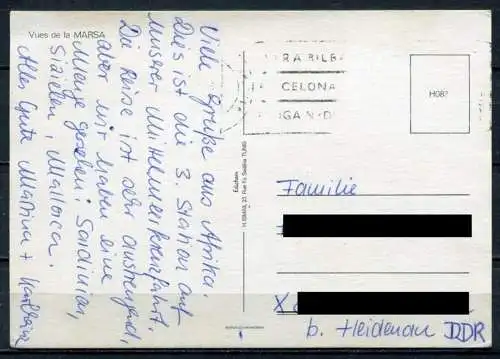 Vues de la MARSA
Viele Grüße aus Afrika.
Dies ist die 3. Station auf
unserer Mittelmeerkreuzfahrt.
Die Reise ist aber anstrengend,
aber wir haben eine
Menge gesehen: Sardinien,
Sizilien, Mallorca.
Alles Gute Martina +
CELONA
H08?
Familie
b. Heidenau DDR